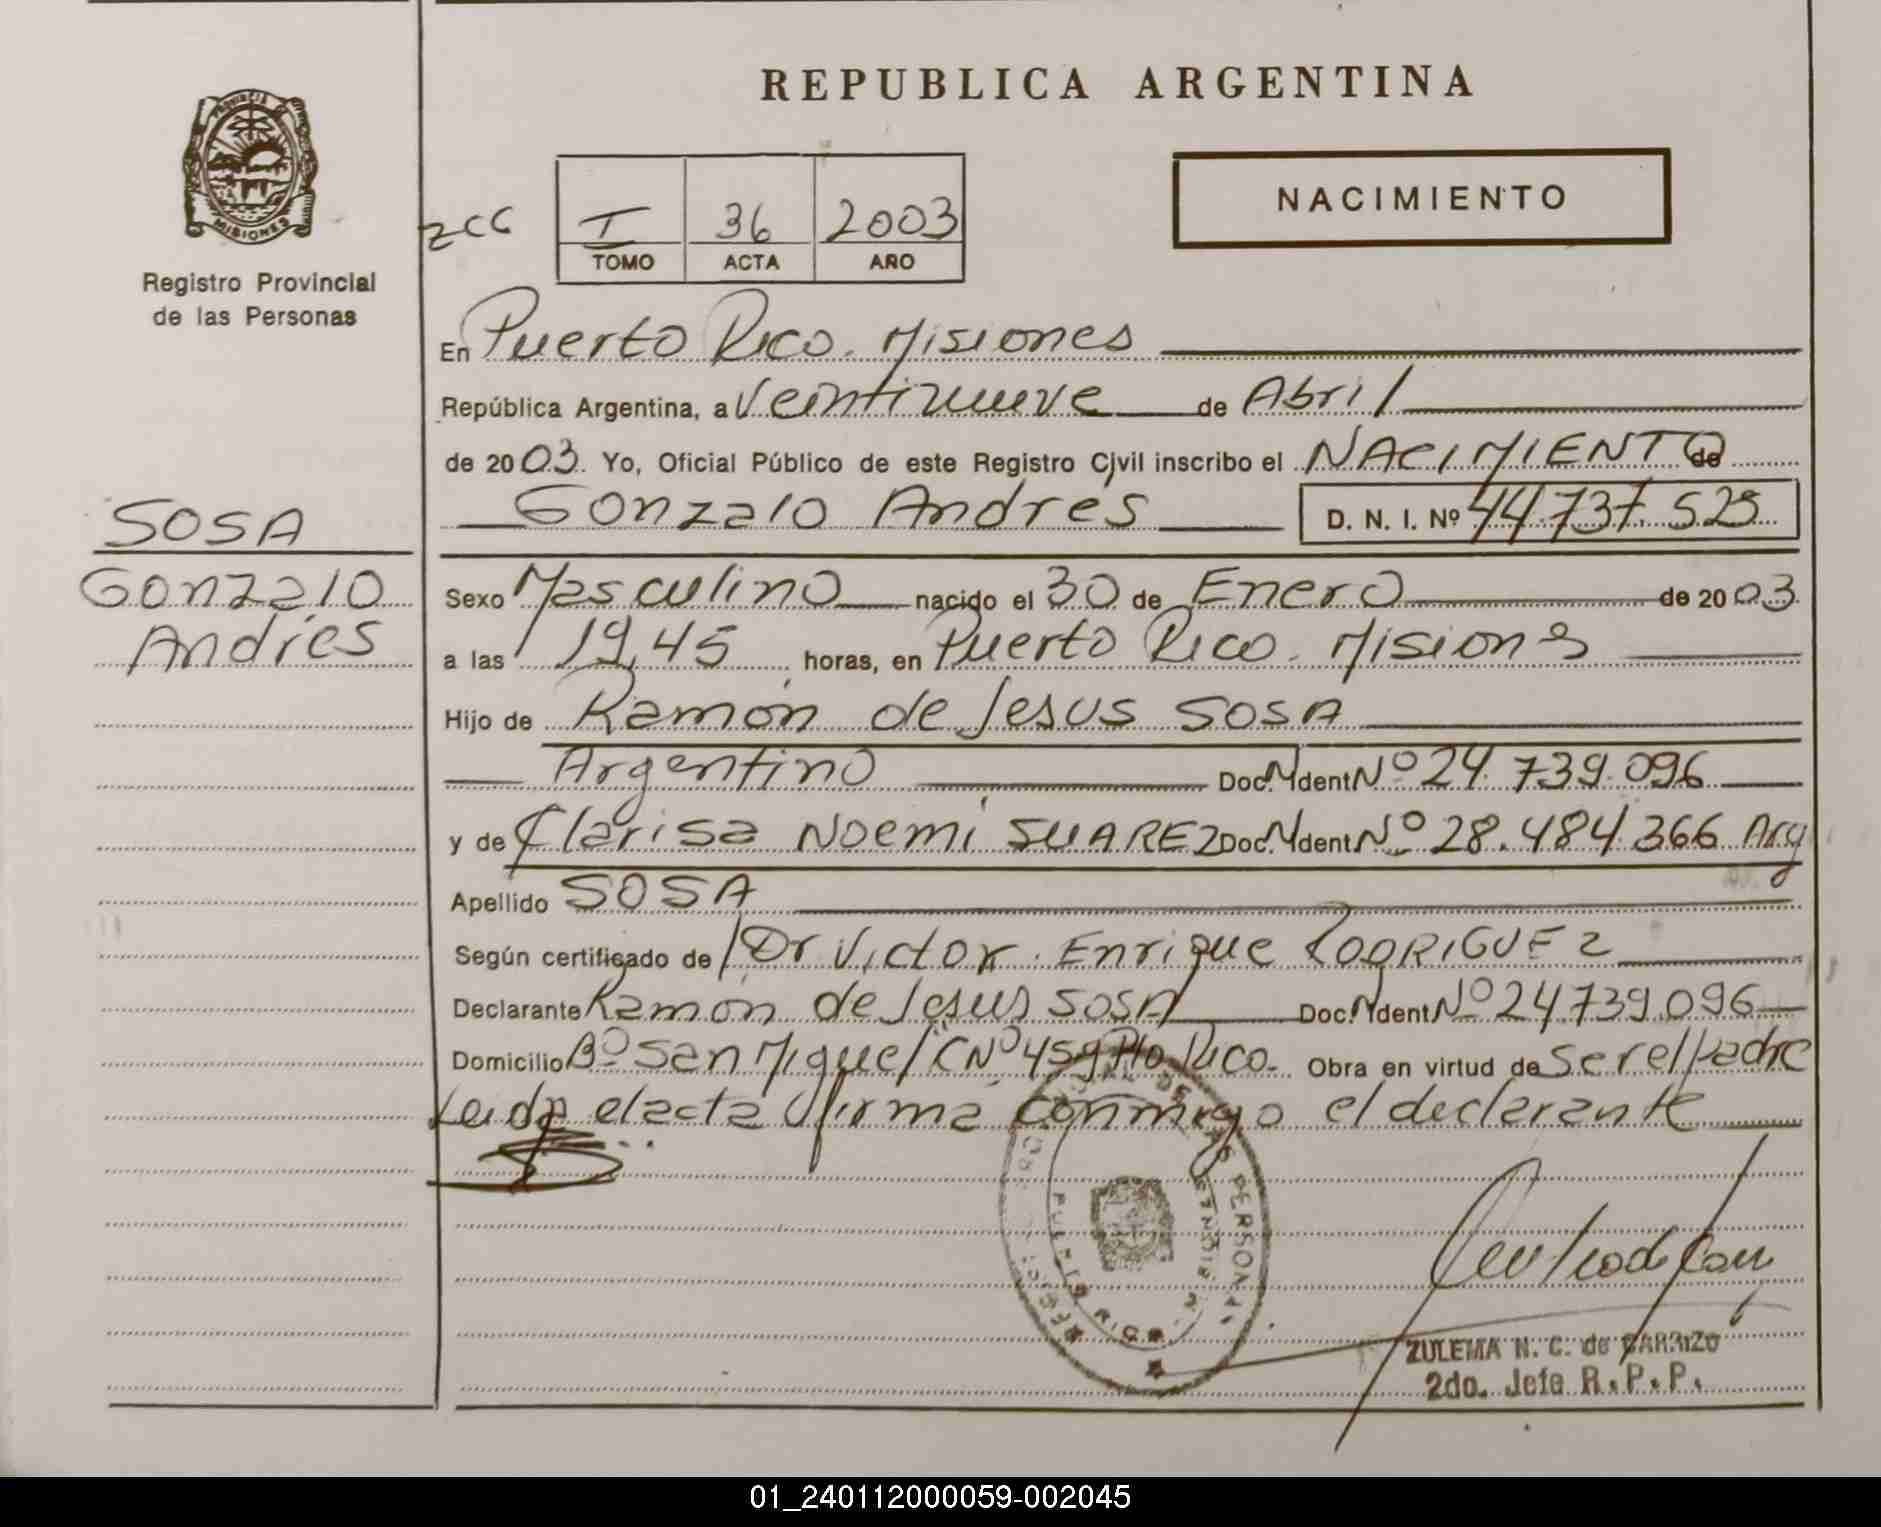 REPUBLICA ARGENTINA
PROVINCIA DE MISIONES
Registro Provincial
de las Personas
NACIMIENTO
I 36 2003
TOMO ACTA AÑO
En Puerto Rico. Misiones
República Argentina, a Veintinueve de Abril
de 2003. Yo, Oficial Público de este Registro Civil inscribo el NACIMIENTO de
Gonzalo Andrés D. N. I. Nº 44.737.525
SOSA
Gonzalo
Andrés
Sexo Masculino nacido el 30 de Enero de 2003
a las 19,45 horas, en Puerto Rico. Misions
Hijo de Ramón de Jesus SOSA
Argentino Doc. Ident Nº 24.739.096
y de Clarisa Noemí SUAREZ Doc. Ident Nº 28.484.366 Arg
Apellido SOSA
Según certificado de Dr Victor Enrique RODRIGUEZ
Declarante Ramón de Jesus SOSA Doc. Ident Nº 24.739.096
Domicilio Bº San Miguel C Nº 459 Pto Rico. Obra en virtud de ser el Padre
Leida el acta firma conmigo el declarante
DE LAS PERSONAS
MISIONES
PUERTO RICO
ZULEMA N. C. de CARRIZO
2do. Jefe R.P.P.
01_240112000059-002045